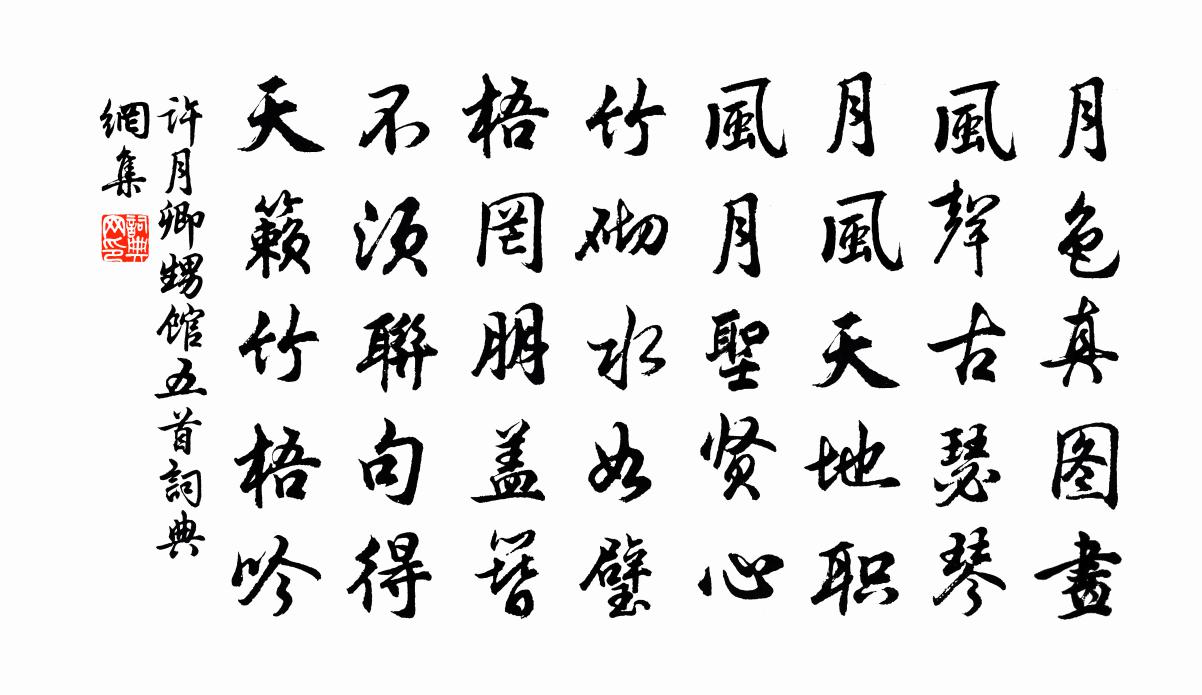 月色真图畫
風聲古瑟琴
月風天地职
風月聖贤心
竹砌水如璧
梧罔朋盖簪
不须聯句得
天籁竹梧吟
许月卿甥馆五首詞典
網集
詞典
网印